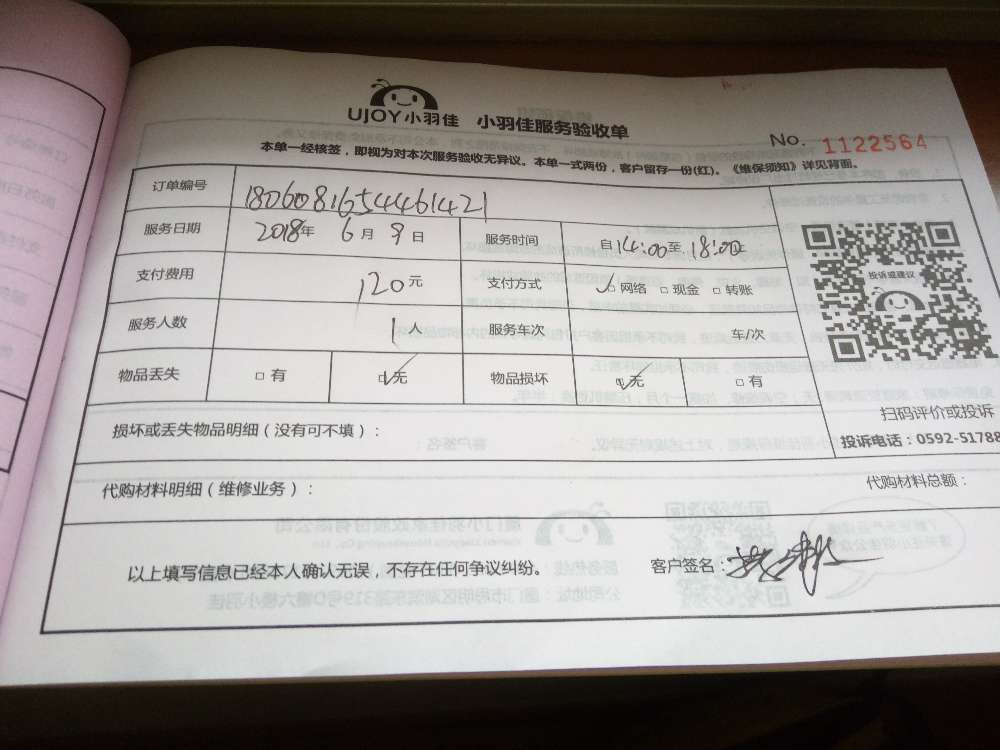 UJOY小羽佳 小羽佳服务验收单
No. 1122564
本单一经核签，即视为对本次服务验收无异议。本单一式两份，客户留存一份(红)。《维保须知》详见背面。
订单编号 18060816544461421
服务日期 2018年 6月 9日 服务时间 自14:00至18:00止
支付费用 120元 支付方式 ☑网络 □现金 □转账
服务人数 1人 服务车次 车/次
物品丢失 □有 ☑无 物品损坏 ☑无 □有
投诉或建议
扫码评价或投诉
投诉电话：0592-51788
损坏或丢失物品明细（没有可不填）：
代购材料明细（维修业务）： 代购材料总额：
以上填写信息已经本人确认无误，不存在任何争议纠纷。 客户签名：